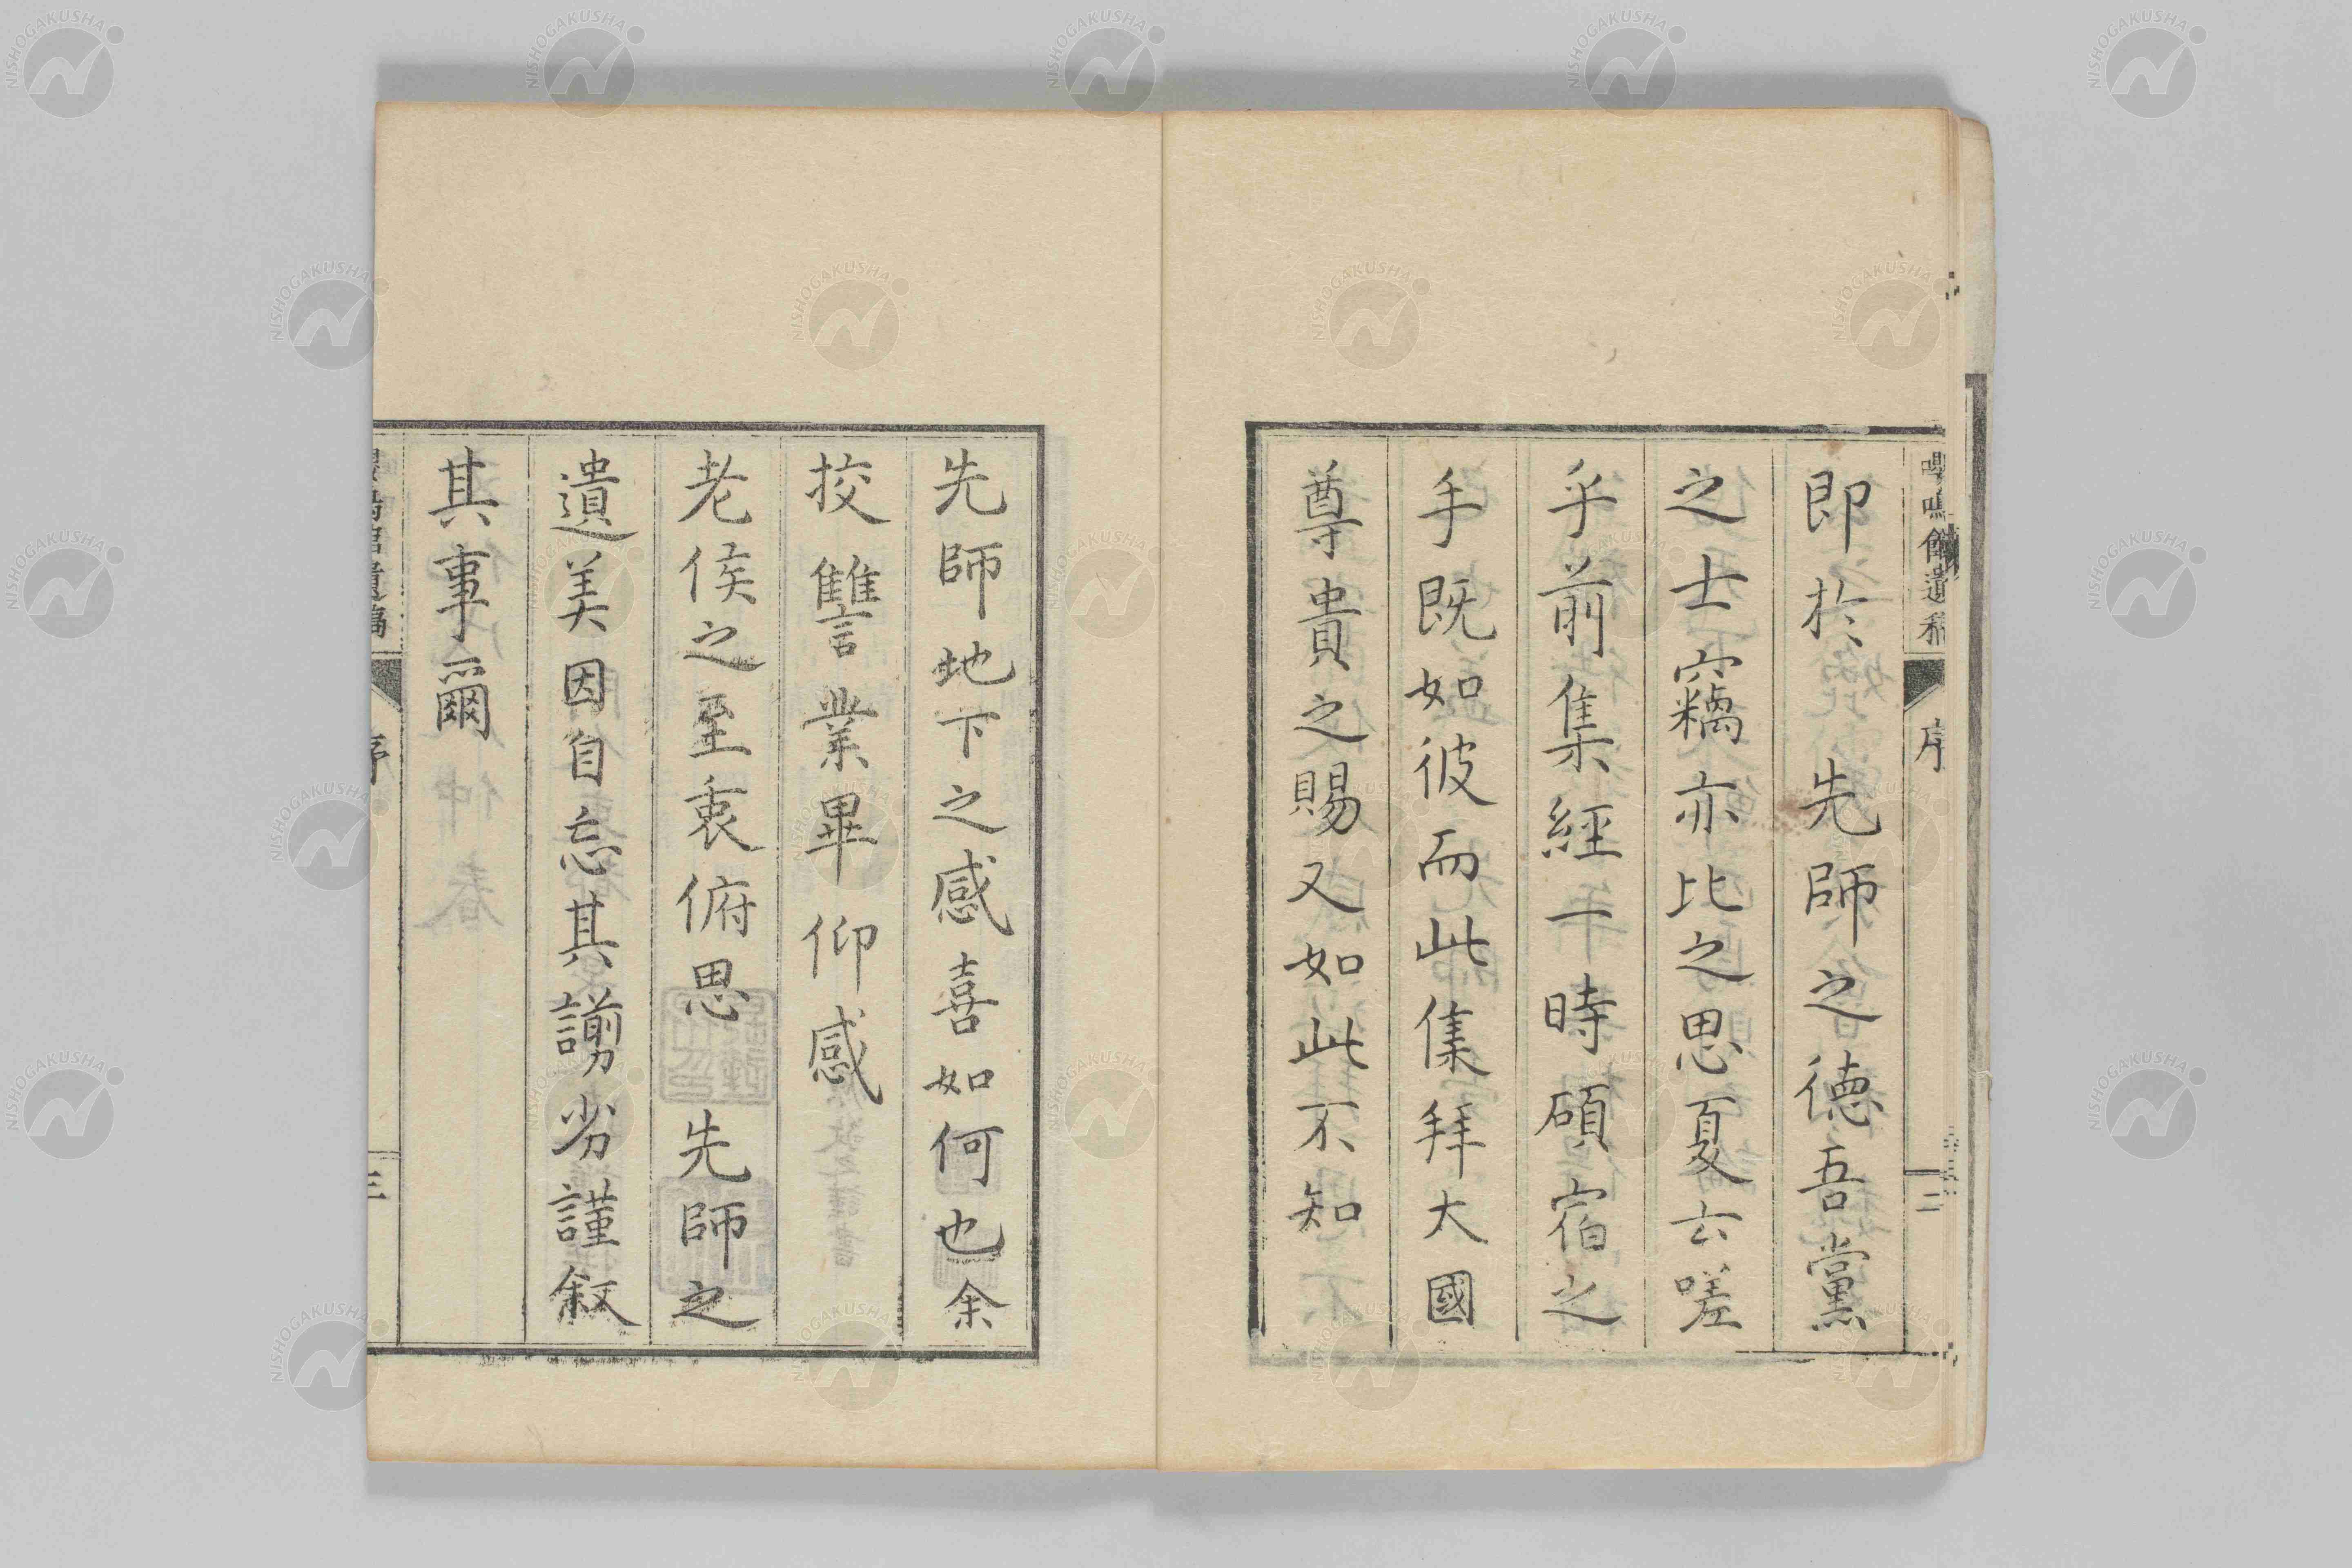 嚶鳴館遺稿 序 二
即於 先師之德吾黨
之士竊亦比之思夏云嗟
乎前集經一時碩宿之
手既如彼而此集拜大國
尊貴之賜又如此不知
先師地下之感喜如何也余
挍讐業畢仰感
老侯之至衷俯思 先師之
遺美因自忘其譾劣謹叙
其事爾
序 三
NISHOGAKUSHA